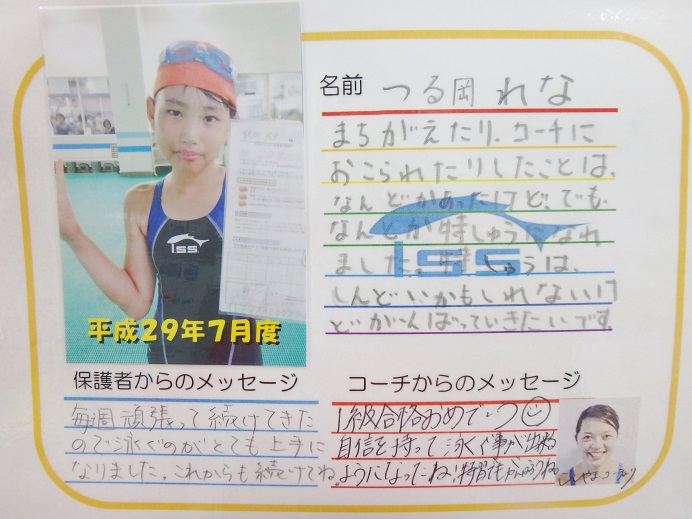 名前 つる岡 れな
まちがえたり、コーチに
おこられたりしたことは、
なんどかあったけど、でも、
なんとか特しゅうになれ
ました。特しゅうは、
しんどいかもしれないけ
どがんばっていきたいです。
ISS
I.S.S.
平成29年7月度
保護者からのメッセージ
毎週頑張って続けてきた
ので泳ぐのがとても上手に
なりました。これからも続けてね。
コーチからのメッセージ
1級合格おめでつ
自信を持って泳ぐ事が出来る
ようになったね!特習でもがんばろうね